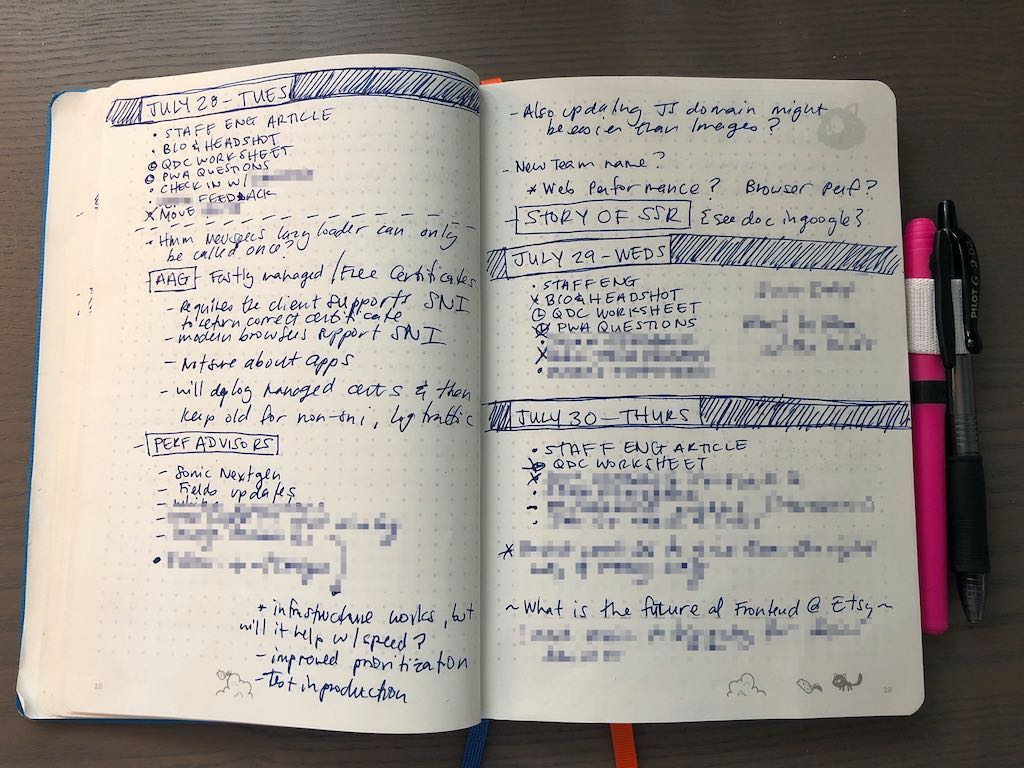 JULY 28 - TUES
• STAFF ENG ARTICLE
• BIO & HEADSHOT
QDC WORKSHEET
PWA QUESTIONS
• CHECK IN W/
FEEDBACK
X MOVE
• Hmm Nevspecs lazy loader can only
be called once?
AAG - Fastly managed / Free Certificates
- Requires the client supports SNI
to return correct certificate
- modern browsers support SNI
- Not sure about apps
- will deploy managed certs & then
keep old for non-sni, log traffic
- PERF ADVISORS
- Sonic Nextgen
- Fields updates
* infrastructure works, but
will it help w/ speed?
- improved prioritization
- Test in production
18
- Also updating JS domain might
be easier than Images?
- New Team name?
* Web Performance? Browser perf?
- STORY OF SSR {see doc in google}
JULY 29 - WEDS
• STAFF ENG
X BIO & HEADSHOT
QDC WORKSHEET
PWA QUESTIONS
JULY 30 - THURS
• STAFF ENG ARTICLE
QDC WORKSHEET
~ What is the future of Frontend @ Etsy ~
19
PILOT G-2